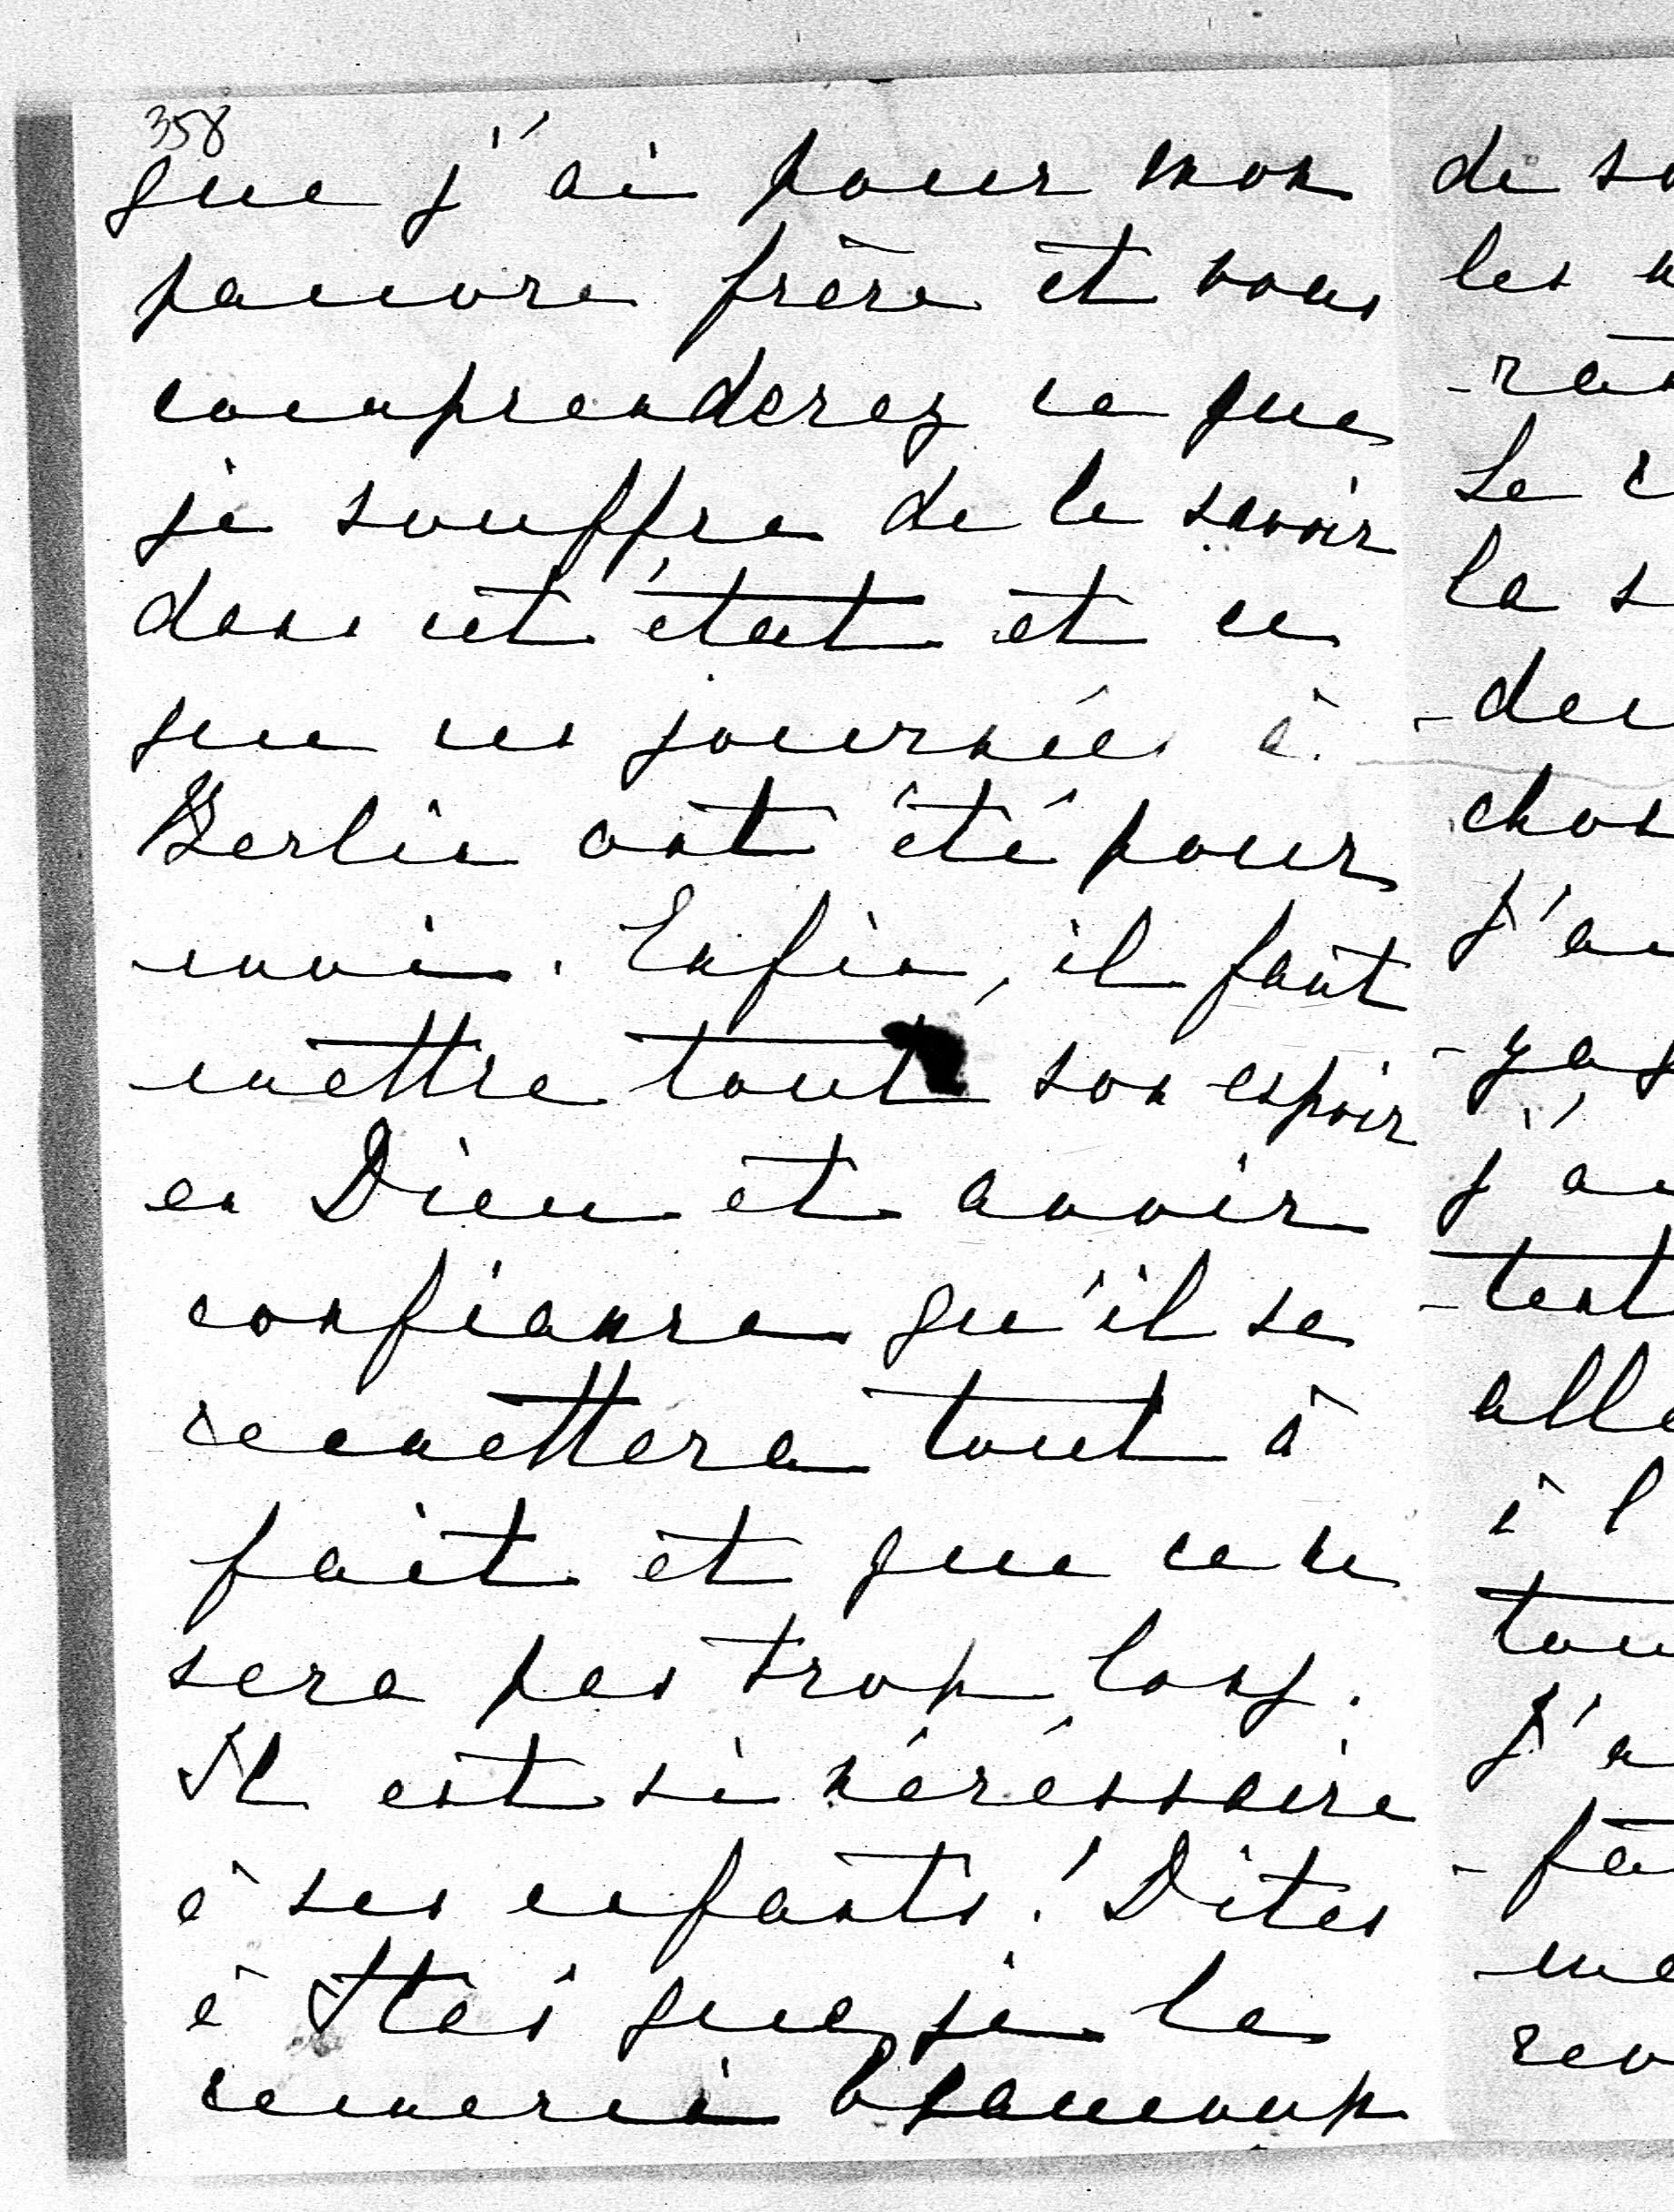 358
que j'ai pour mon
pauvre frère et vous
comprenderez ce que
je souffre de le savoir
dans cet état et ce
que ces journées à
Berlin ont été pour
moi. Enfin, il faut
mettre tout son espoir
en Dieu et avoir
confiance qu'il se
remettera tout à
fait et que ce ne
sera pas trop long.
Il est si nécéssaire
à ses enfants! Dites
à que je la
remercie beaucoup
de
les
Le
la
J'a
j'a
à l
J'a